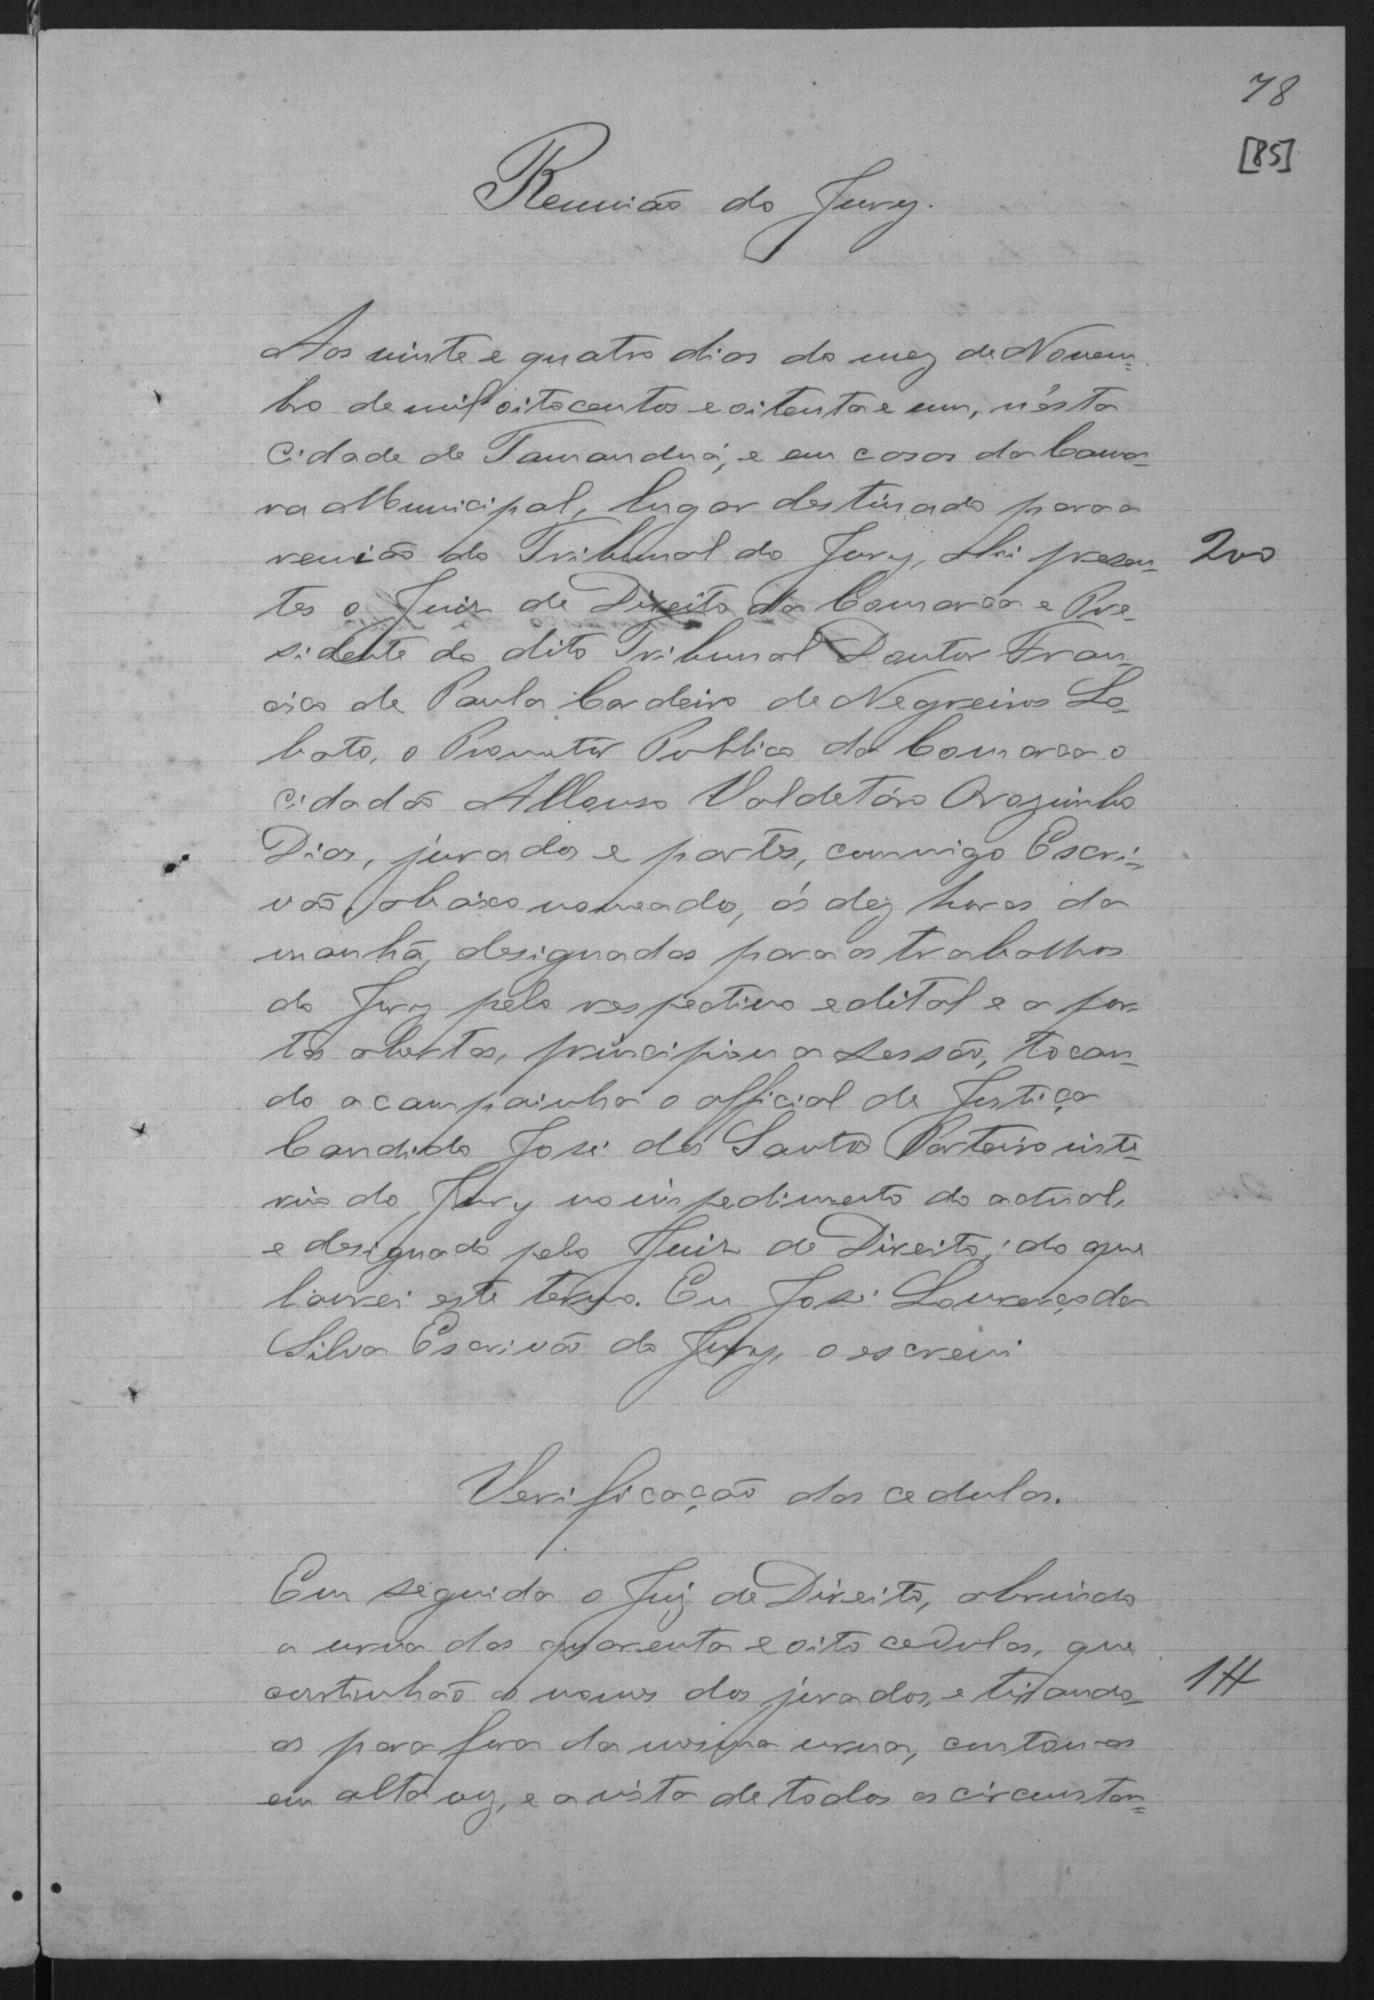 78
[85]
Reunião do Jury.
Aos vinte e quatro dias do mez de Novem=
bro de mil oitocentos e oitenta e um, n'ésta
Cidade de Tamanduá, e em casas da Cama-
ra Municipal, lugar destinado para a
reunião do Tribunal do Jury, ahi presen- 200
tes o Juiz de Direito da Comarca e Pre-
sidente do dito Tribunal Doutor Fran-
cisco de Paula Cordeiro de Negreiros Lo-
bato, o Promotor Publico da Comarca o
cidadão Affonso Valdetáro
Dias, jurados e partes, commigo Escri-
vão abaixo nomeado, ás dez horas da
manhã, designadas para os trabalhos
do Jury pelo respectivo edital e a por-
tas abertas, principiou a sessão, tocan-
do a campainha o official de Justiça
Candido José dos Santos Porteiro inte-
rino do Jury no impedimento do actual,
e designado pelo Juiz de Direito; do que
lavrei este termo. Eu José Lourenço da
Silva Escrivão do Jury, o escrevi
Verificação das cedulas.
Em seguida o Juiz de Direito, abrindo
a urna das quarenta e oito cedulas, que
continhão os nomes dos jurados, e tirando- 1H
as para fora da mesma urna, contou-as
em alta voz, e a vista de todos os circunstan=